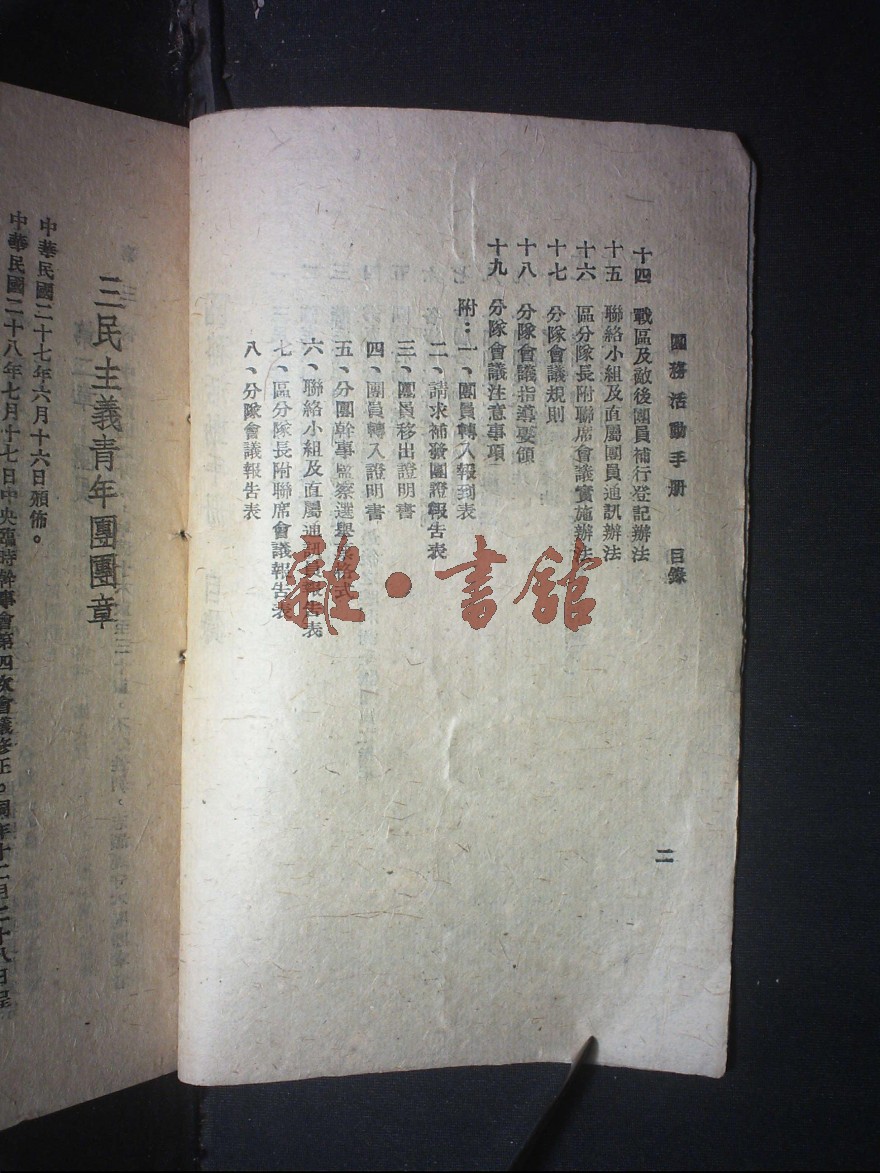 團務活動手册 目錄
十四 戰區及敵後團員補行登記辦法
十五 聯絡小組及直屬團員通訊辦法
十六 區分隊長附聯席會議實施辦法
十七 分隊會議規則
十八 分隊會議指導要領
十九 分隊會議注意事項
附：一、團員轉入報到表
二、請求補發團證報告表
三、團員移出證明書
四、團員轉入證明書
五、分團幹事監察選舉票格式
六、聯絡小組及直屬通訊員報告表
七、區分隊長附聯席會議報告表
八、分隊會議報告表
二
雜·書館
三民主義青年團團章
中華民國二十七年六月十六日頒佈。
中華民國二十八年七月十七日中央臨時幹事會第四次會議修正。同年十二月二十八日呈